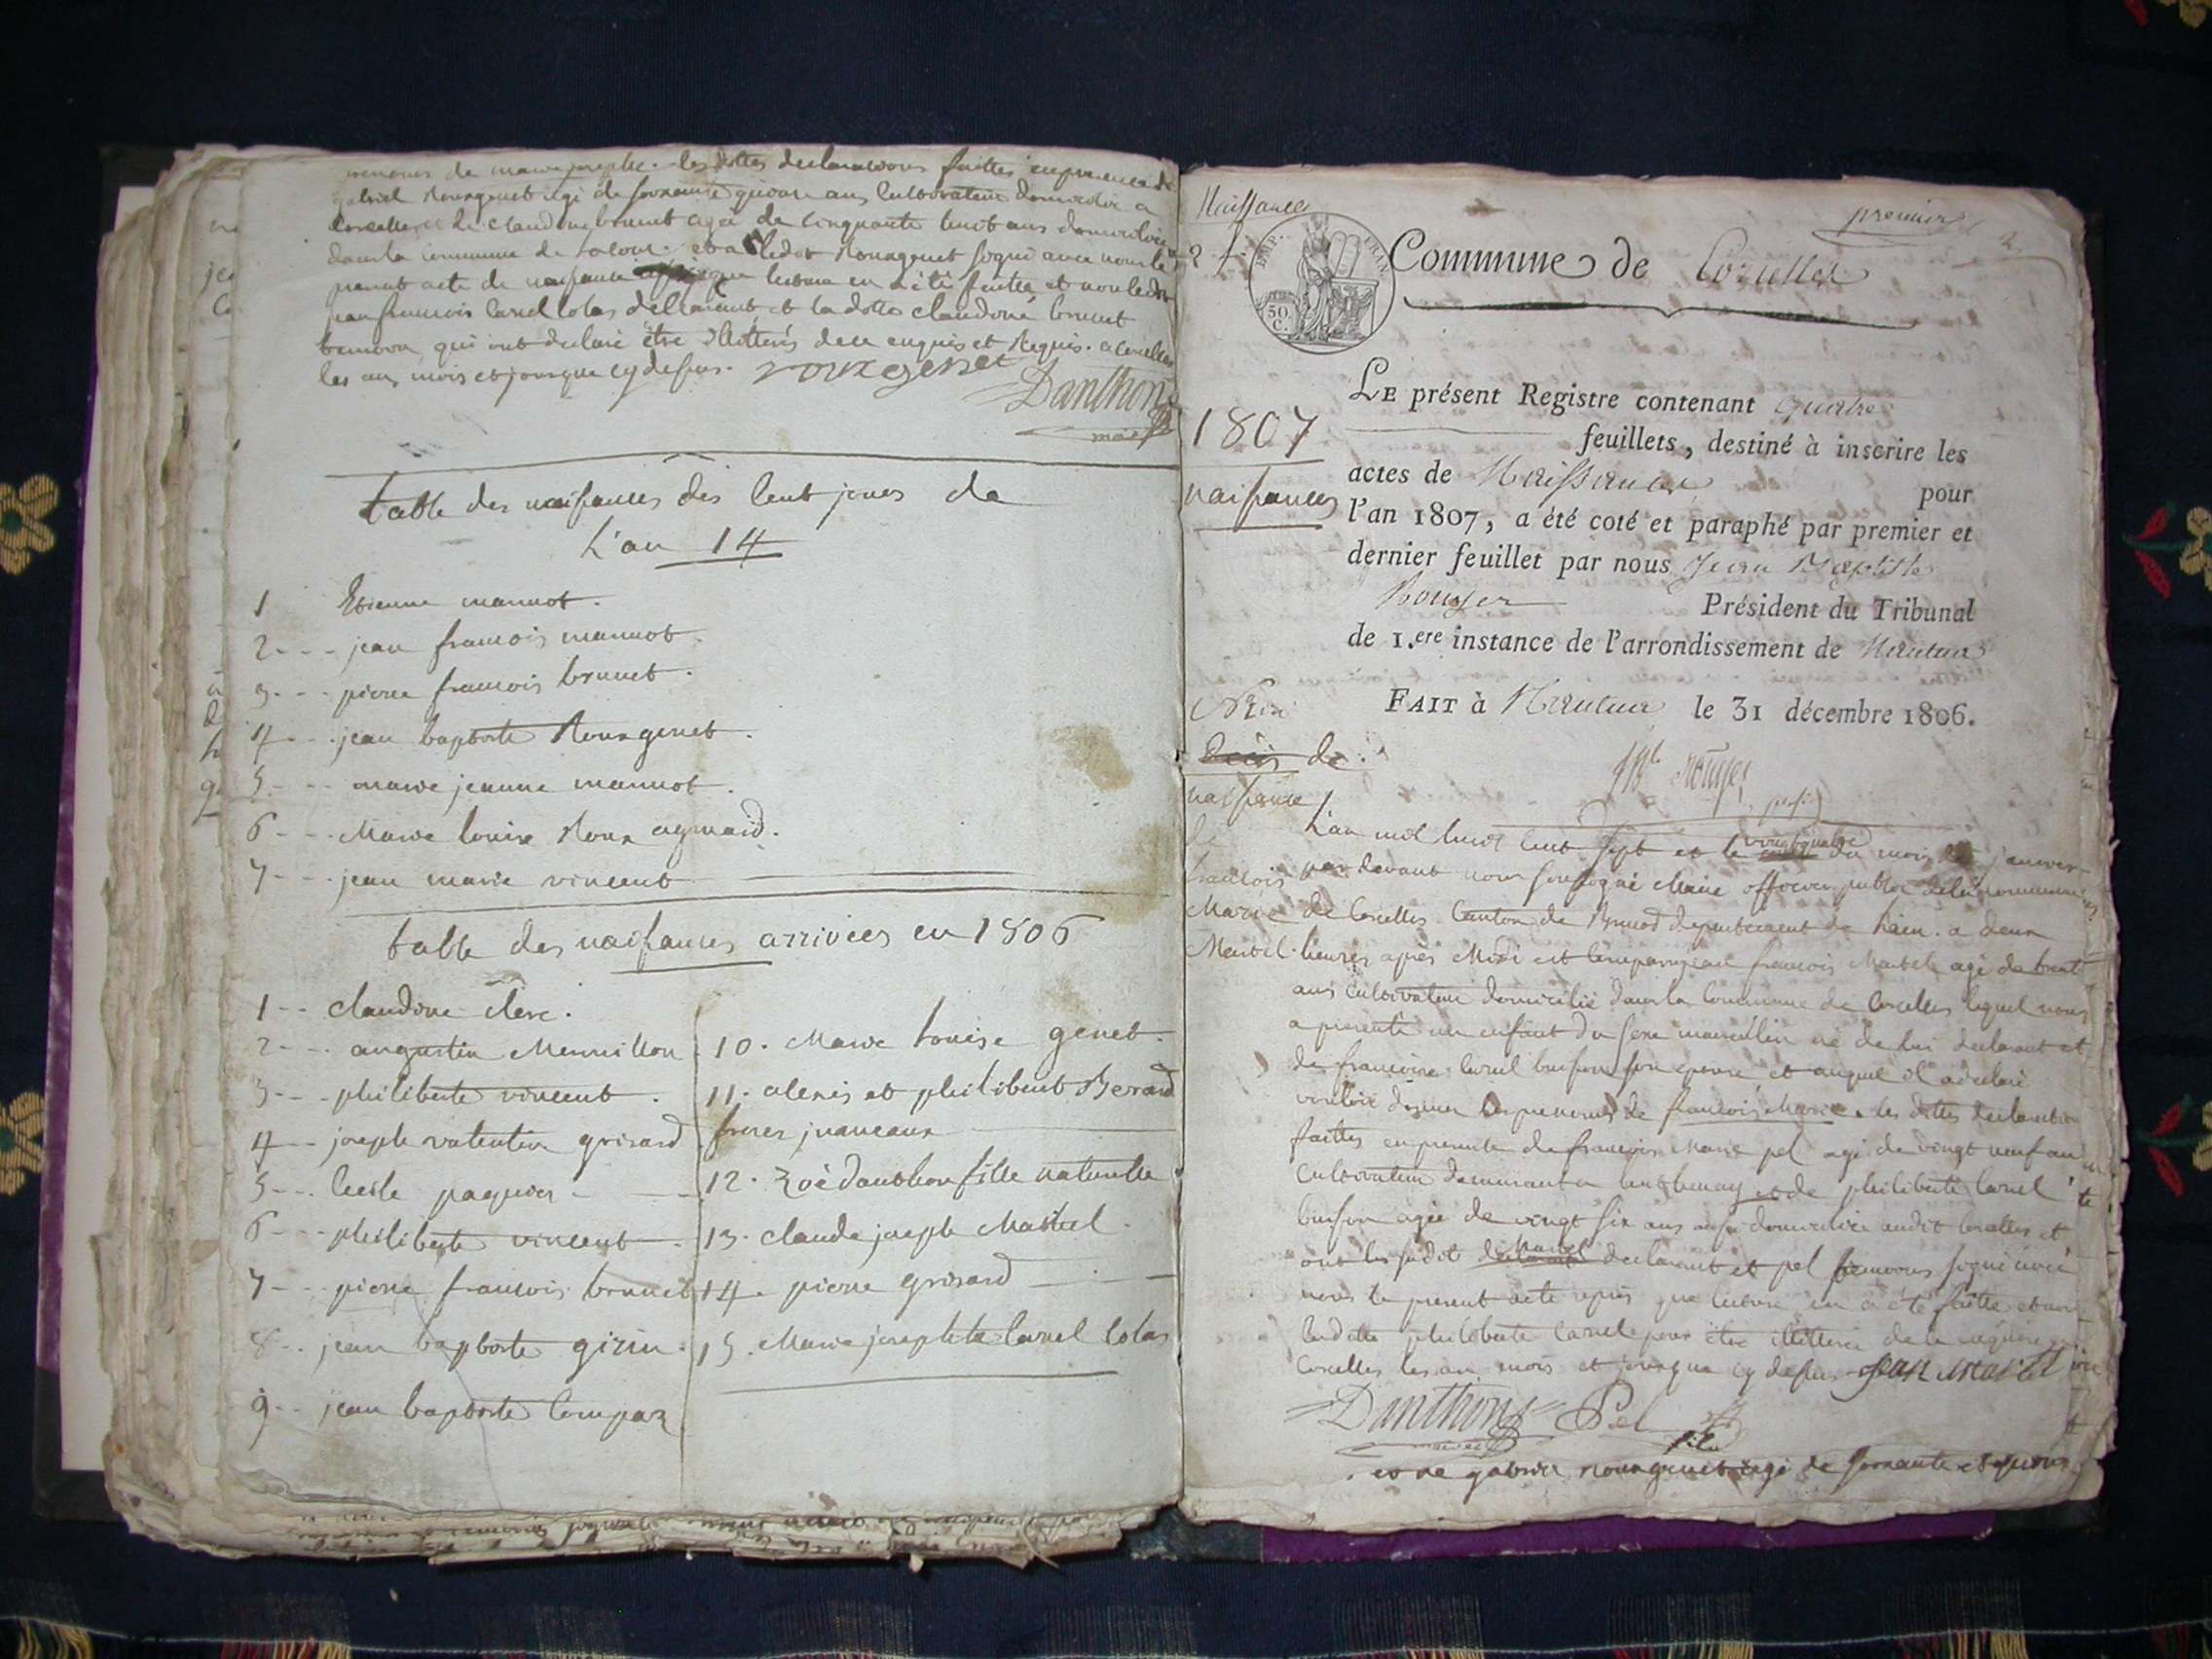 prenoms de marie josephe. les dittes declarations faittes en presence de
gabriel Rouxgenet agé de soixante quinze ans Cultivateur domicilié a
Corcelles et de claudine brunet agée de cinquante huit ans domiciliée
dans la commune de et a ledit Rouxgenet signé avec nous le
present acte de naissance après que lecture en a été faitte et non ledit
jean francois Carrel Colas declarant et la ditte claudine brunet
temoin qui ont declaré être illittérés de ce enquis et Requis. a Corcelles
les an, mois et jour que cy dessus. rouxgenet
Danthon
maire
table des naissances des cent jours de
L'an 14
1 Etienne mannot.
2 - - - jean francois mannot.
3 - - - pierre francois brunet.
4 - - - jean baptiste Rouxgenet.
5 - - - marie jeanne mannot.
6 - - - Marie louise Roux aymard.
7 - - - jean marie vincent
table des naissances arrivées en 1806
1 - - claudine clerc.
2 - - - augustin Mermillon
3 - - - philiberte vincent.
4 - - joseph valentin grisard
5 - - - Cecile paquier -
6 - - - philiberte vincent
7 - - - pierre francois brunet
8 - - jean baptiste girin.
9 - - jean baptiste Compaz
10. Marie Louise genet.
11. alexis et philibert Berard
freres jumeaux
12. Zoé danthon fille naturelle
13. claude joseph Martel
14. pierre grisard
15. Marie josephte Carrel Colas
Naissances
premier
Commune de Corcelles
EMP. FRAN.
50. C.
1807
naissances
LE présent Registre contenant quatre
feuillets, destiné à inscrire les
actes de Naissances pour
l'an 1807, a été coté et paraphé par premier et
dernier feuillet par nous Jean Baptiste
Rouyer Président du Tribunal
de 1.ere instance de l'arrondissement de Nantua
FAIT à Nantua le 31 décembre 1806.
Rouyer
de
naissance
de
francois
Marie
Martel
L'an mil huit cent sept et le vingt quatre du mois de janvier
par devant nous soussigné Maire officier public de la commune
de Corcelles Canton de Brenod departement de l'ain. a deux
heures après Midi est comparu jean francois Martel agé de trent
ans cultivateur domicilié dans la Commune de Corcelles lequel nous
a presenté un enfant du sexe masculin né de lui declarant et
de francoise Carrel buisson son epouse et auquel il a declaré
vouloir donner les prenoms de francois Marie. les dittes declaration
faittes en presence de francois Marie pel agé de vingt neuf an
cultivateur demeurant a et de philiberte Carrel
buisson agée de vingt six ans aussi domiciliée audit Corcelles et
ont les sudit Martel declarant et pel temoins signé avec
nous le present acte après que lecture en a été faitte et non
laditte philiberte Carrel pour être illitterée de ce enquise a
Corcelles les an, mois et jour que cy dessus jean Martel
Danthon Pel
maire
et de gabriel rouxgenet agé de soixante et quinze